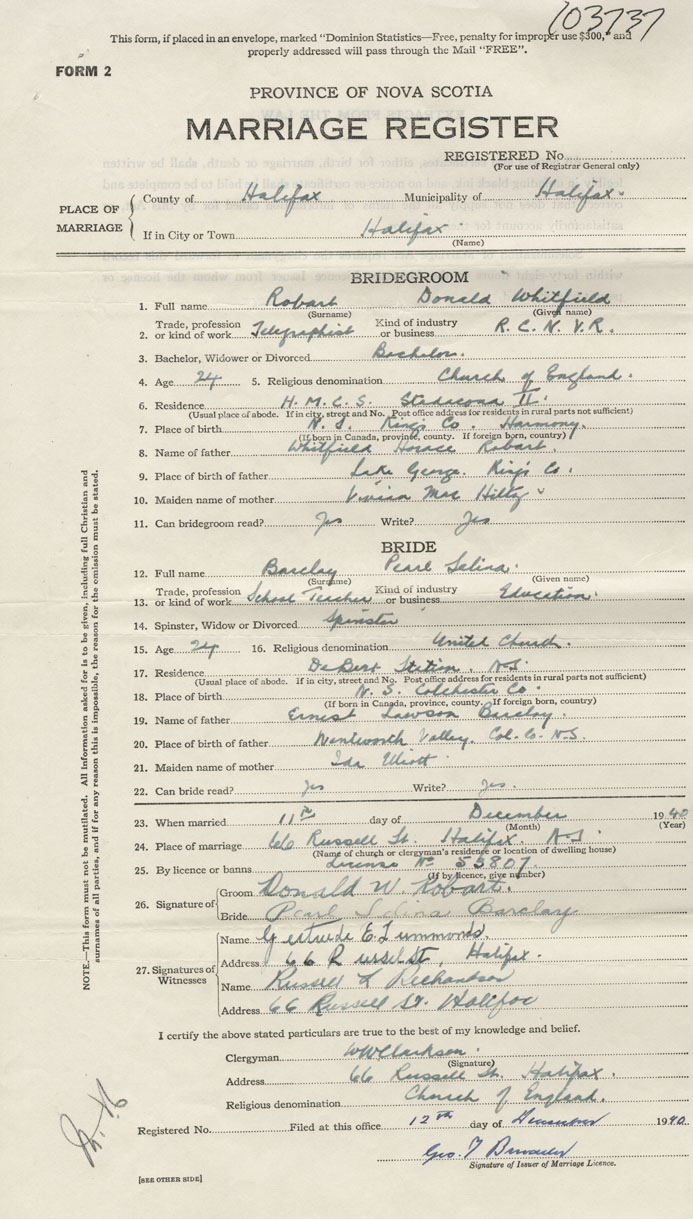 103737
This form, if placed in an envelope, marked "Dominion Statistics—Free, penalty for improper use $300," and
properly addressed will pass through the Mail "FREE".
FORM 2
PROVINCE OF NOVA SCOTIA
MARRIAGE REGISTER
REGISTERED No.
(For use of Registrar General only)
PLACE OF MARRIAGE
County of Halifax Municipality of Halifax.
If in City or Town Halifax
(Name)
BRIDEGROOM
1. Full name Robart Donald Whitfield
(Surname) (Given name)
2. Trade, profession or kind of work Telegraphist Kind of industry or business R.C.N.V.R.
3. Bachelor, Widower or Divorced Bachelor.
4. Age 24 5. Religious denomination Church of England.
6. Residence H.M.C.S. Stadacona II.
(Usual place of abode. If in city, street and No. Post office address for residents in rural parts not sufficient)
7. Place of birth N.S. Kings Co. Harmony.
(If born in Canada, province, county. If foreign born, country)
8. Name of father Whitfield Horace Robart.
9. Place of birth of father Lake George. Kings Co.
10. Maiden name of mother Vivian Mae Hiltz
11. Can bridegroom read? Yes Write? Yes
BRIDE
12. Full name Barclay Pearl Selina.
(Surname) (Given name)
13. Trade, profession or kind of work School Teacher Kind of industry or business Education.
14. Spinster, Widow or Divorced Spinster
15. Age 24 16. Religious denomination United Church.
17. Residence DeBert Station. N.S.
(Usual place of abode. If in city, street and No. Post office address for residents in rural parts not sufficient)
18. Place of birth N.S. Colchester Co.
(If born in Canada, province, county. If foreign born, country)
19. Name of father Ernest Lawson Barclay.
20. Place of birth of father Wentworth Valley. Col. Co. N.S.
21. Maiden name of mother Ida
22. Can bride read? Yes Write? Yes.
23. When married 11th day of December 1940
(Month) (Year)
24. Place of marriage 66 Russell St. Halifax. N.S.
(Name of church or clergyman's residence or location of dwelling house)
25. By licence or banns License No 55807.
(If by licence, give number)
26. Signature of
Groom Donald W. Robart.
Bride Pearl Selina Barclay
27. Signatures of Witnesses
Name Gertrude E.
Address 66 Russel St, Halifax.
Name Russell L Richardson
Address 66 Russell St. Halifax
I certify the above stated particulars are true to the best of my knowledge and belief.
Clergyman WW Clarkson.
(Signature)
Address 66 Russell St. Halifax.
Religious denomination Church of England.
Registered No. Filed at this office 12th day of December 1940.
Geo. T
Signature of Issuer of Marriage Licence.
[SEE OTHER SIDE]
NOTE.—This form must not be mutilated. All information asked for is to be given, including full Christian and
surnames of all parties, and if for any reason this is impossible, the reason for the omission must be stated.